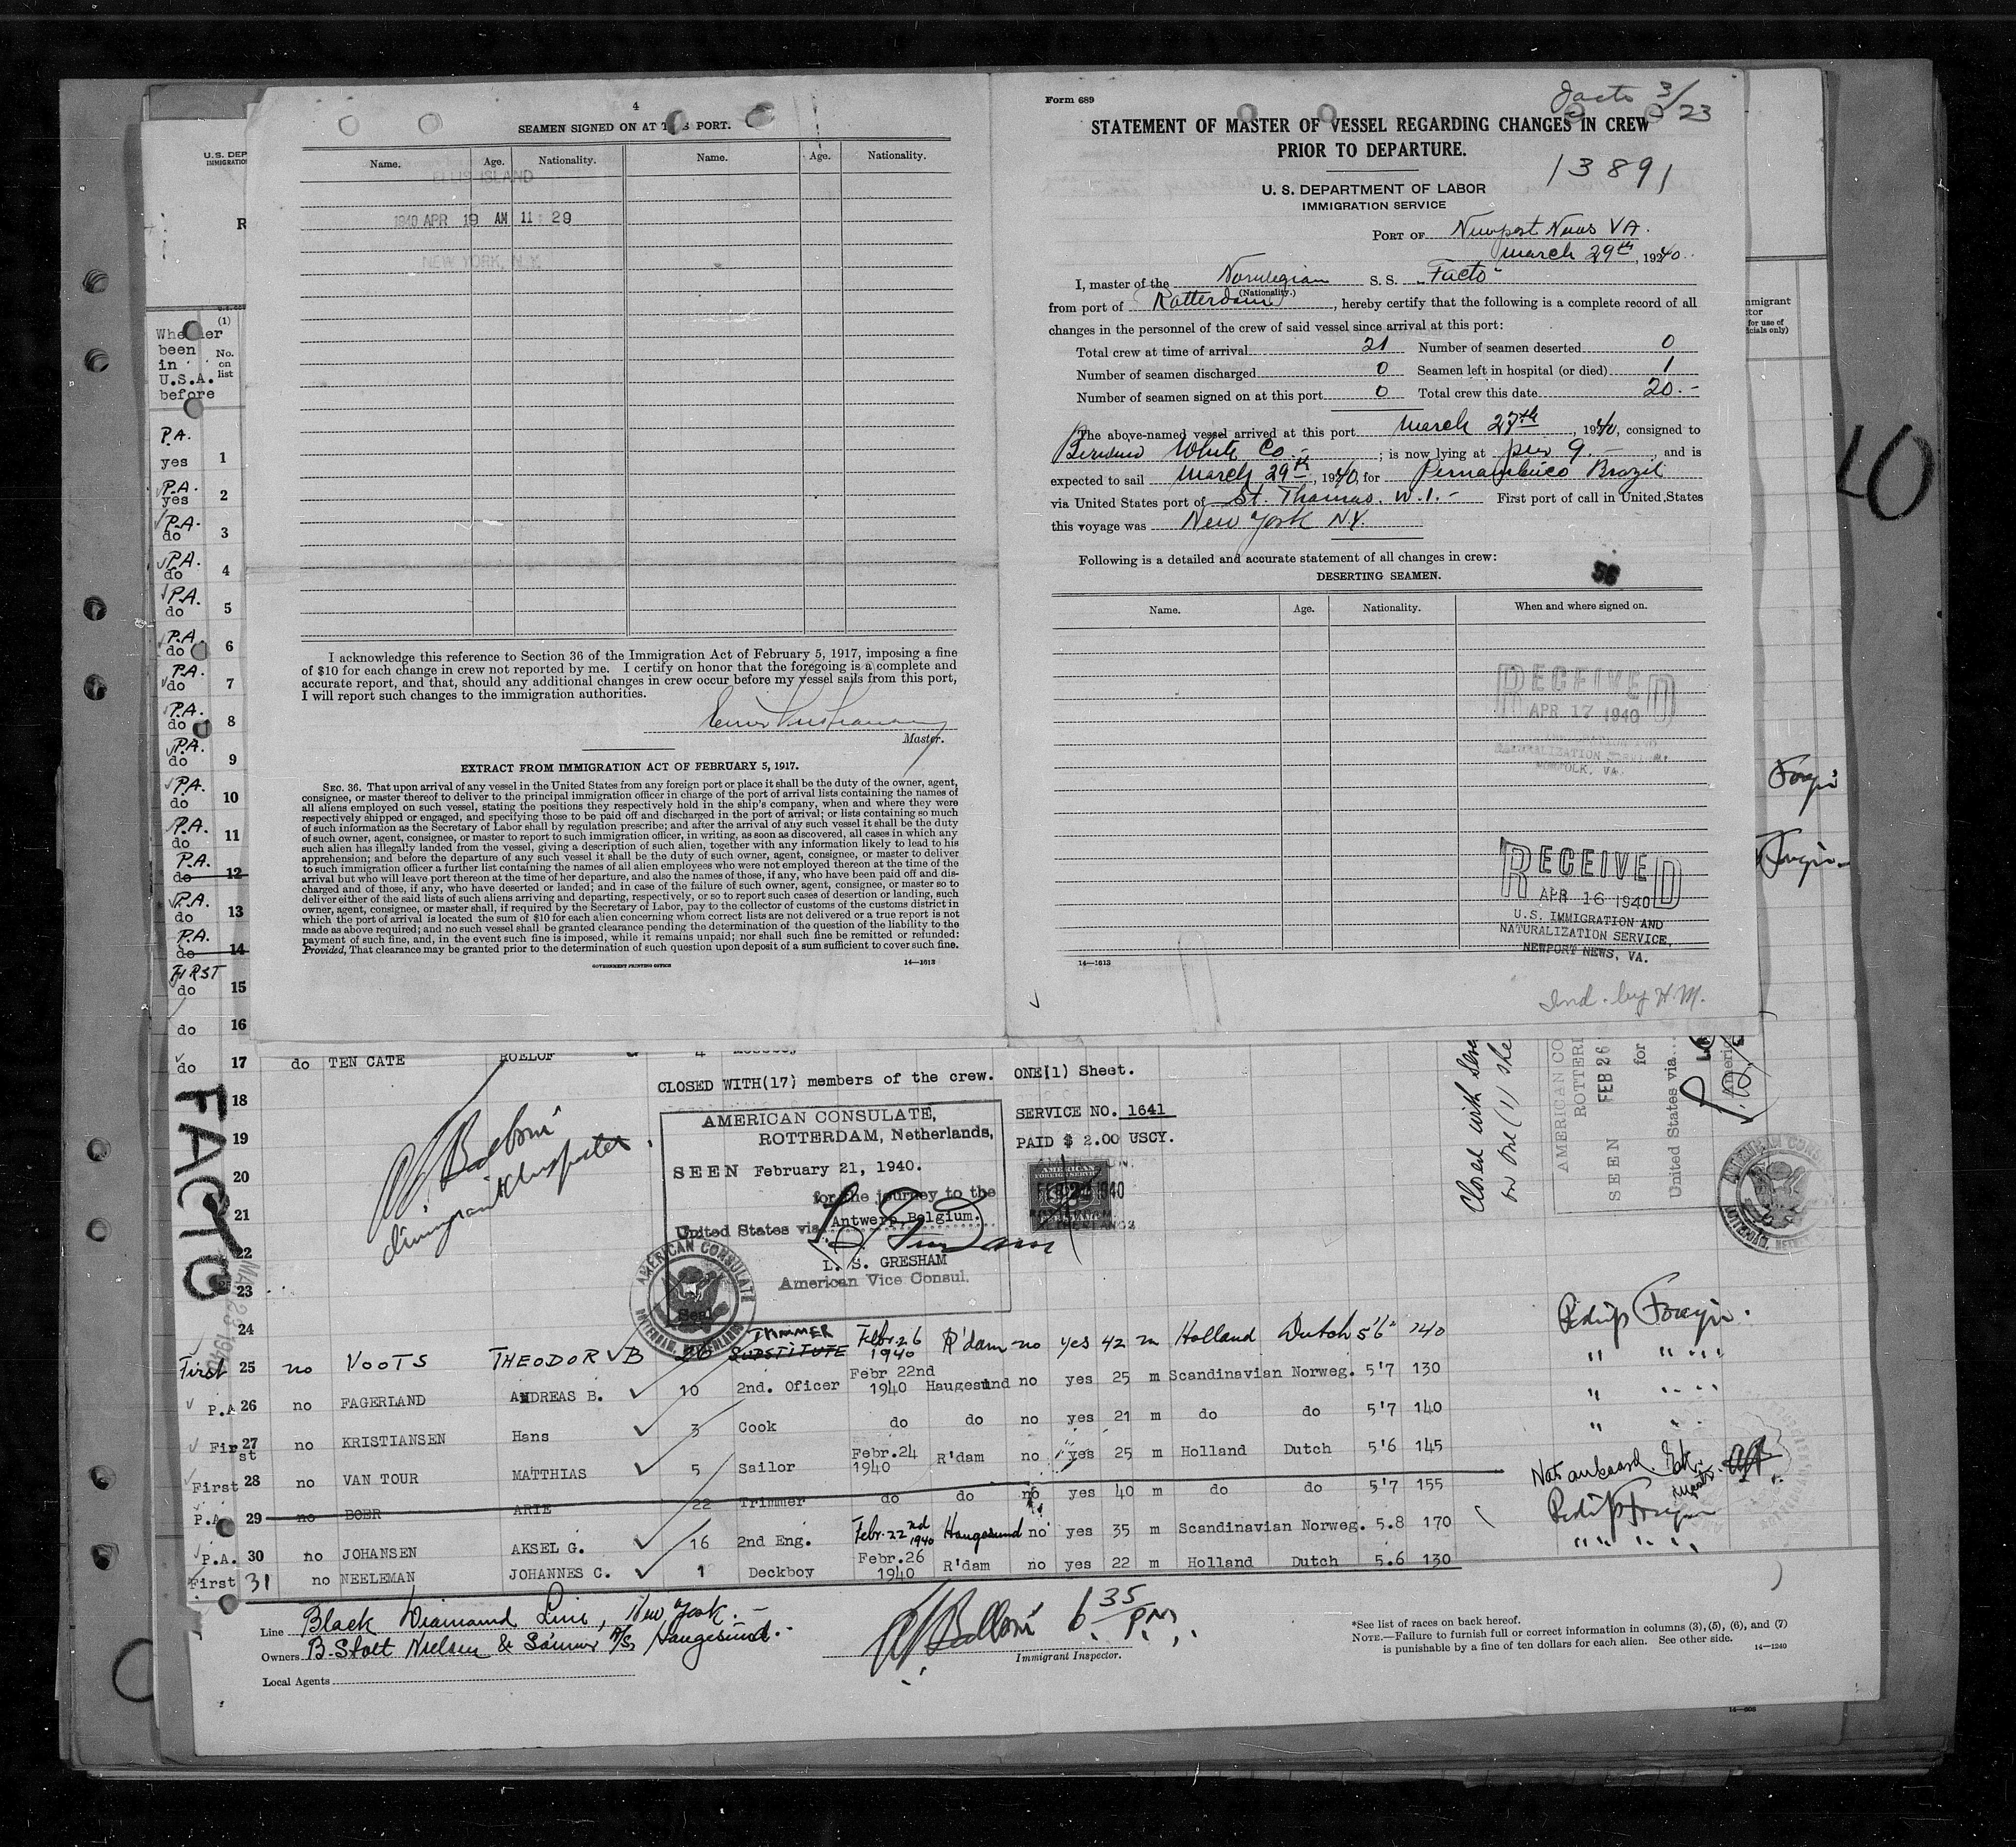 4
SEAMEN SIGNED ON AT THIS PORT.
Name. Age. Nationality. Name. Age. Nationality.
ELLIS ISLAND
1940 APR 19 AM 11 29
NEW YORK, N.Y.
I acknowledge this reference to Section 36 of the Immigration Act of February 5, 1917, imposing a fine
of $10 for each change in crew not reported by me. I certify on honor that the foregoing is a complete and
accurate report, and that, should any additional changes in crew occur before my vessel sails from this port,
I will report such changes to the immigration authorities.
Master.
EXTRACT FROM IMMIGRATION ACT OF FEBRUARY 5, 1917.
SEC. 36. That upon arrival of any vessel in the United States from any foreign port or place it shall be the duty of the owner, agent,
consignee, or master thereof to deliver to the principal immigration officer in charge of the port of arrival lists containing the names of
all aliens employed on such vessel, stating the positions they respectively hold in the ship's company, when and where they were
respectively shipped or engaged, and specifying those to be paid off and discharged in the port of arrival; or lists containing so much
of such information as the Secretary of Labor shall by regulation prescribe; and after the arrival of any such vessel it shall be the duty
of such owner, agent, consignee, or master to report to such immigration officer, in writing, as soon as discovered, all cases in which any
such alien has illegally landed from the vessel, giving a description of such alien, together with any information likely to lead to his
apprehension; and before the departure of any such vessel it shall be the duty of such owner, agent, consignee, or master to deliver
to such immigration officer a further list containing the names of all alien employees who were not employed thereon at the time of the
arrival but who will leave port thereon at the time of her departure, and also the names of those, if any, who have been paid off and dis-
charged and of those, if any, who have deserted or landed; and in case of the failure of such owner, agent, consignee, or master so to
deliver either of the said lists of such aliens arriving and departing, respectively, or so to report such cases of desertion or landing, such
owner, agent, consignee, or master shall, if required by the Secretary of Labor, pay to the collector of customs of the customs district in
which the port of arrival is located the sum of $10 for each alien concerning whom correct lists are not delivered or a true report is not
made as above required; and no such vessel shall be granted clearance pending the determination of the question of the liability to the
payment of such fine, and, in the event such fine is imposed, while it remains unpaid; nor shall such fine be remitted or refunded:
Provided, That clearance may be granted prior to the determination of such question upon deposit of a sum sufficient to cover such fine.
GOVERNMENT PRINTING OFFICE 14—1613
Form 689
Facto 3/23
STATEMENT OF MASTER OF VESSEL REGARDING CHANGES IN CREW
PRIOR TO DEPARTURE.
13891
U. S. DEPARTMENT OF LABOR
IMMIGRATION SERVICE
PORT OF Newport News VA.
March 29th, 1940.
I, master of the Norwegian S. S. "Facto"
(Nationality.)
from port of Rotterdam, hereby certify that the following is a complete record of all
changes in the personnel of the crew of said vessel since arrival at this port:
Total crew at time of arrival 21 Number of seamen deserted 0
Number of seamen discharged 0 Seamen left in hospital (or died) 1
Number of seamen signed on at this port 0 Total crew this date 20.-
The above-named vessel arrived at this port March 27th, 1940, consigned to
White Co.; is now lying at pier 9.-, and is
expected to sail March 29th, 1940, for Pernambuco Brazil
via United States port of St. Thomas. W.I.- First port of call in United States
this voyage was New York N.Y.
Following is a detailed and accurate statement of all changes in crew:
DESERTING SEAMEN.
Name. Age. Nationality. When and where signed on.
RECEIVED
APR 17 1940
NATURALIZATION SERVICE
NORFOLK, VA.
RECEIVED
APR 16 1940
U.S. IMMIGRATION AND
NATURALIZATION SERVICE,
NEWPORT NEWS, VA.
14—1613
Ind. by H.M.
U.S. DEP
IMMIGRATION
R
(1)
Whether
been
in
U.S.A.
before
No.
on
list
P.A.
yes 1
P.A.
yes 2
P.A.
do 3
P.A.
do 4
P.A.
do 5
P.A.
do 6
P.A.
do 7
P.A.
do 8
P.A.
do 9
P.A.
do 10
P.A.
do 11
P.A.
do 12
P.A.
do 13
P.A.
do 14
FIRST
do 15
do 16
do 17 do TEN CATE ROELOF 4
18
19
20
21
22
23
24
FACTO
MAR 23 1940
mmigrant
ctor
for use of
icials only)
10
CLOSED WITH(17) members of the crew. ONE(1) Sheet.
AMERICAN CONSULATE,
ROTTERDAM, Netherlands,
SEEN February 21, 1940.
for the journey to the
United States via Antwerp Belgium.
L. S. GRESHAM
American Vice Consul.
Seal
AMERICAN CONSULATE
ROTTERDAM, NETHERLANDS
SERVICE NO. 1641
PAID $ 2.00 USCY.
AMERICAN
FOREIGN SERVICE
FEB 21 1940
Immigrant Inspector
Closed with
on one (1) she
AMERICAN CO
ROTTERD
SEEN FEB 26
for
United States via
First 25 no VOOTS THEODOR B 26 TRIMMER SUBSTITUTE Febr. 26 1940 R'dam no yes 42 m Holland Dutch 5'6" 140
P.A 26 no FAGERLAND ANDREAS B. 10 2nd. Oficer Febr 22nd 1940 Haugesund no yes 25 m Scandinavian Norweg. 5'7 130
First 27 no KRISTIANSEN Hans 3 Cook do do no yes 21 m do do 5'7 140
First 28 no VAN TOUR MATTHIAS 5 Sailor Febr.24 1940 R'dam no yes 25 m Holland Dutch 5'6 145
P.A. 29 no BOER ARIE 22 Trimmer do do no yes 40 m do do 5'7 155
Not onboard.
P.A. 30 no JOHANSEN AKSEL G. 16 2nd Eng. Febr. 22nd 1940 Haugesund no yes 35 m Scandinavian Norweg. 5.8 170
First 31 no NEELEMAN JOHANNES C. 1 Deckboy Febr.26 1940 R'dam no yes 22 m Holland Dutch 5.6 130
Line Black Diamond Line, New York.-
Owners B. Stolt Nielsen & Sønner A/S, Haugesund.
Local Agents
6.35 P.M.
Immigrant Inspector.
*See list of races on back hereof.
NOTE.—Failure to furnish full or correct information in columns (3), (5), (6), and (7)
is punishable by a fine of ten dollars for each alien. See other side. 14—1240